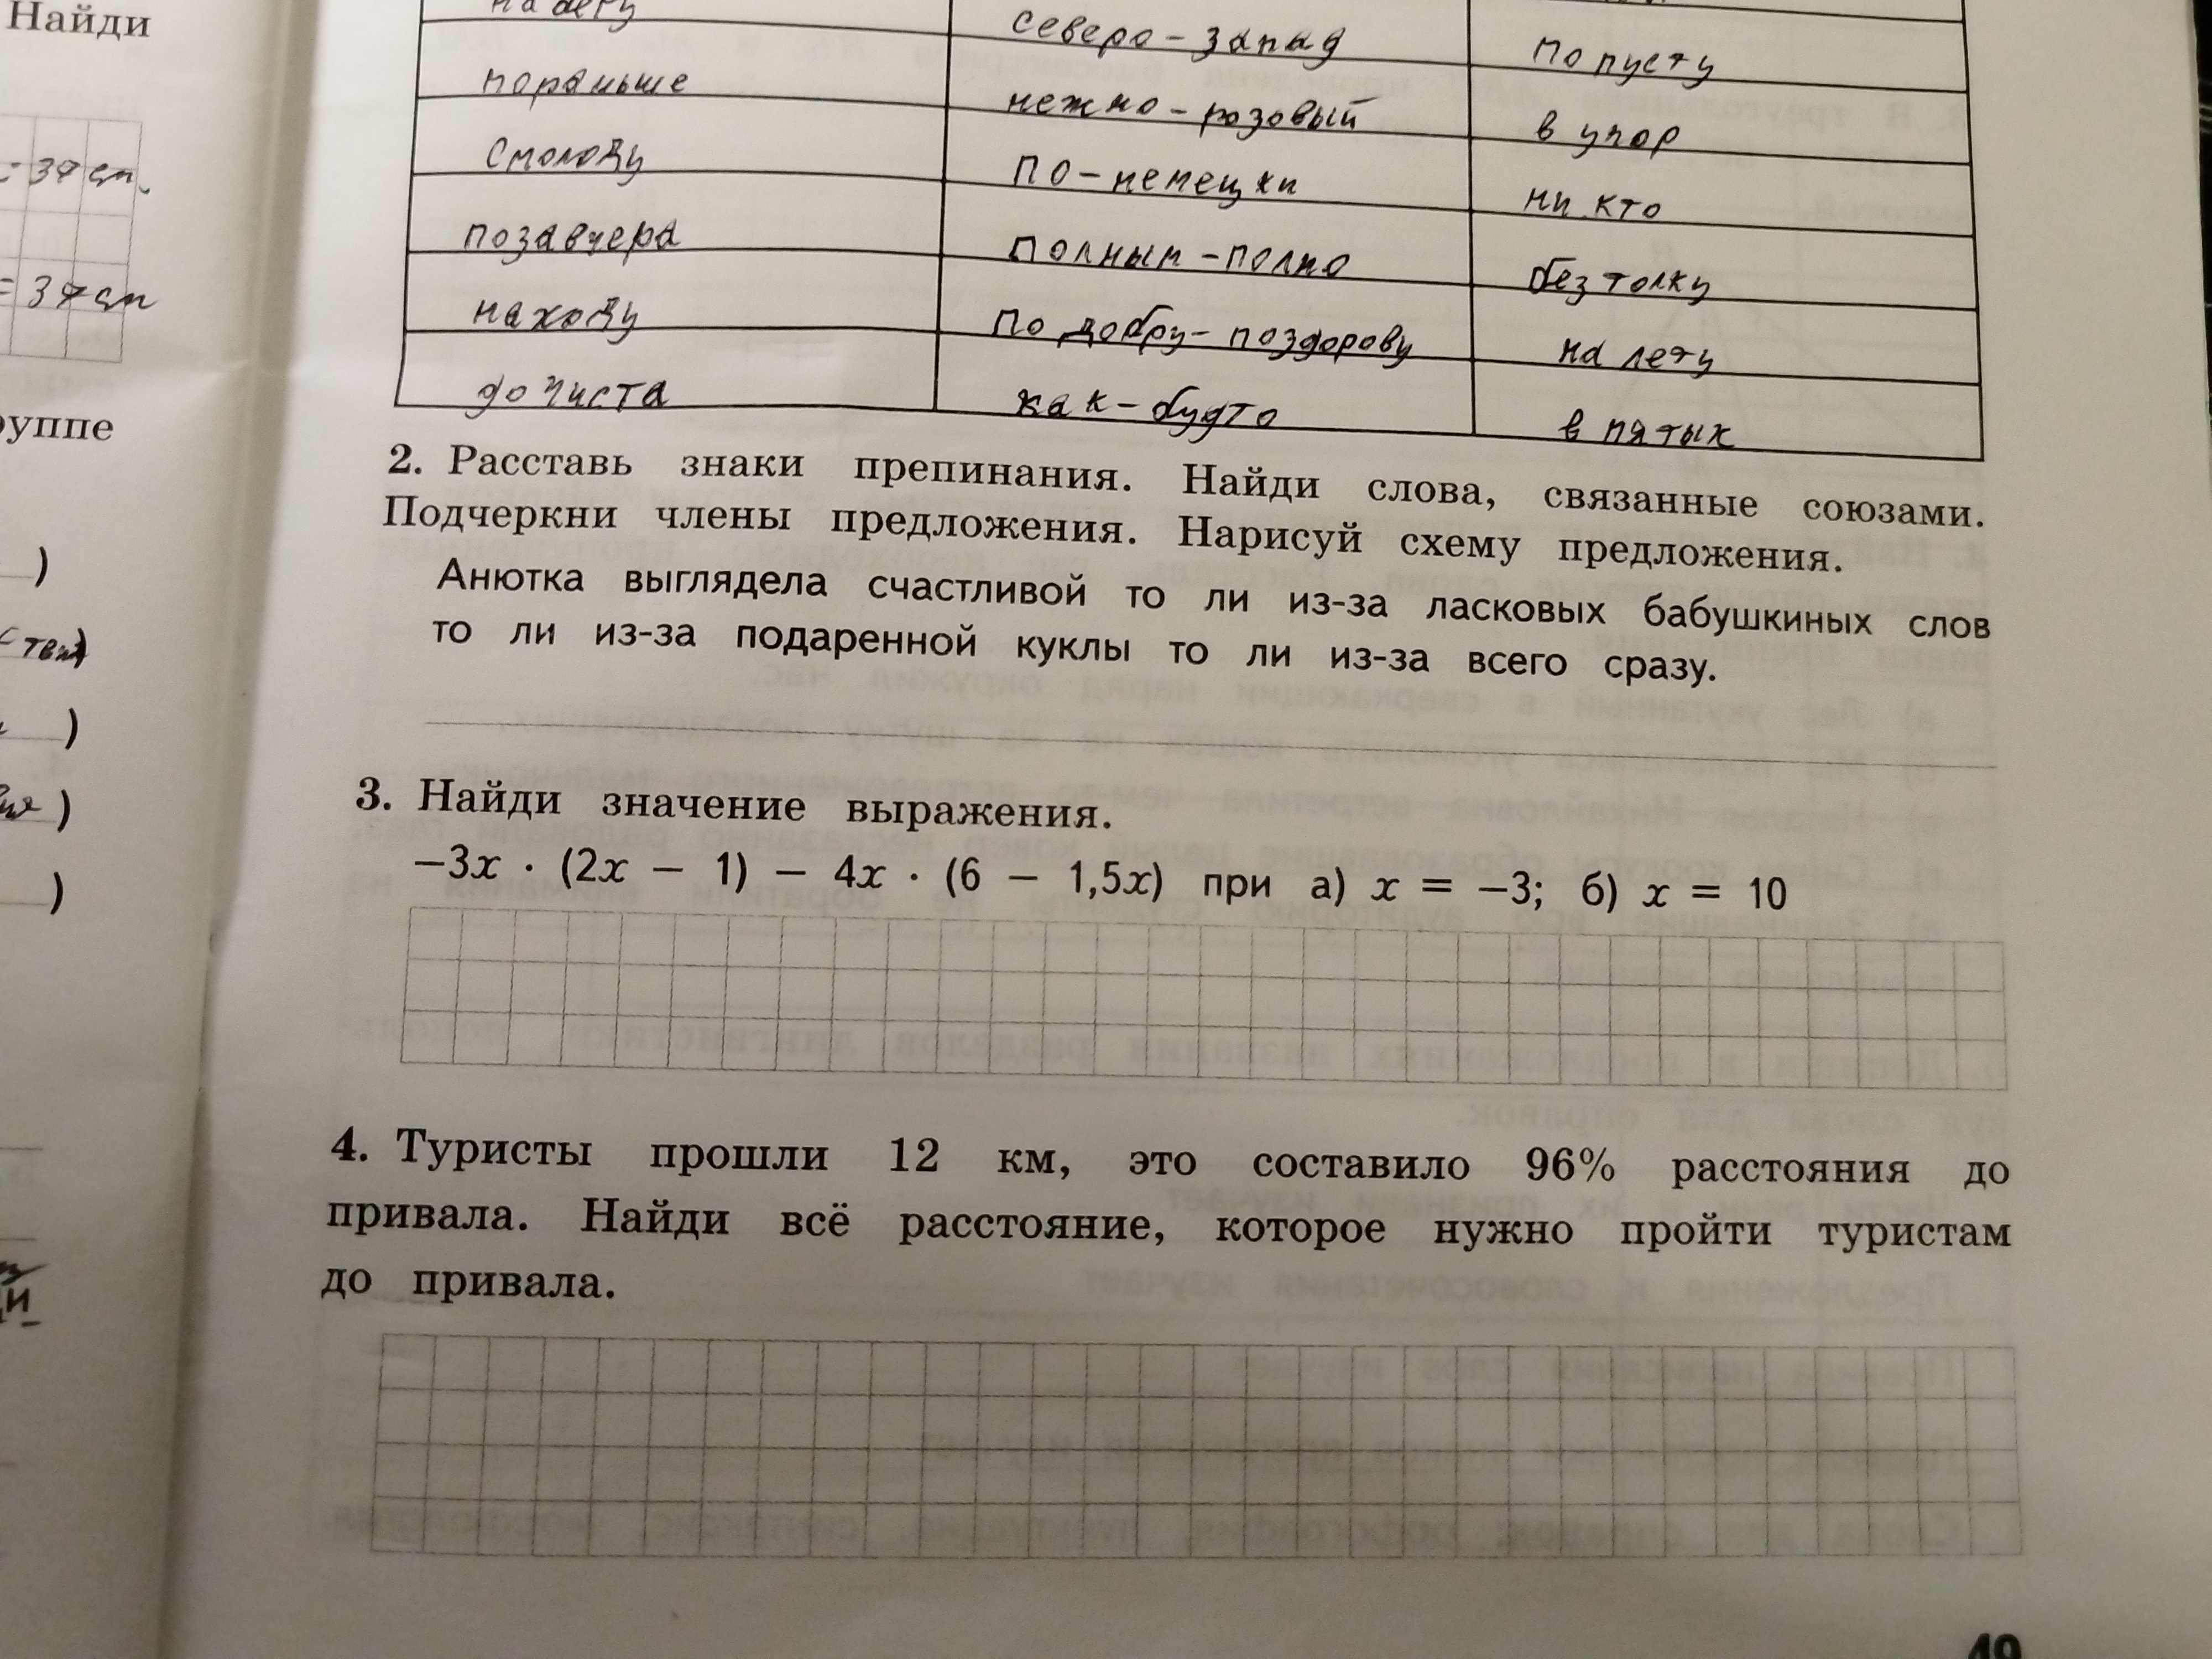 Найди
набегу
северо-запад
по пусту
пораньше
нежно-розовый
в упор
смолоду
по-немецки
ни кто
позавчера
полным-полно
без толку
находу
по добру-поздорову
на лету
дочиста
как-будто
в пятых
37 см.
= 37 см
руппе
)
)
)
)
)
2. Расставь знаки препинания. Найди слова, связанные союзами.
Подчеркни члены предложения. Нарисуй схему предложения.
Анютка выглядела счастливой то ли из-за ласковых бабушкиных слов
то ли из-за подаренной куклы то ли из-за всего сразу.
3. Найди значение выражения.
−3x · (2x − 1) − 4x · (6 − 1,5x) при а) x = −3; б) x = 10
4. Туристы прошли 12 км, это составило 96% расстояния до
привала. Найди всё расстояние, которое нужно пройти туристам
до привала.
49